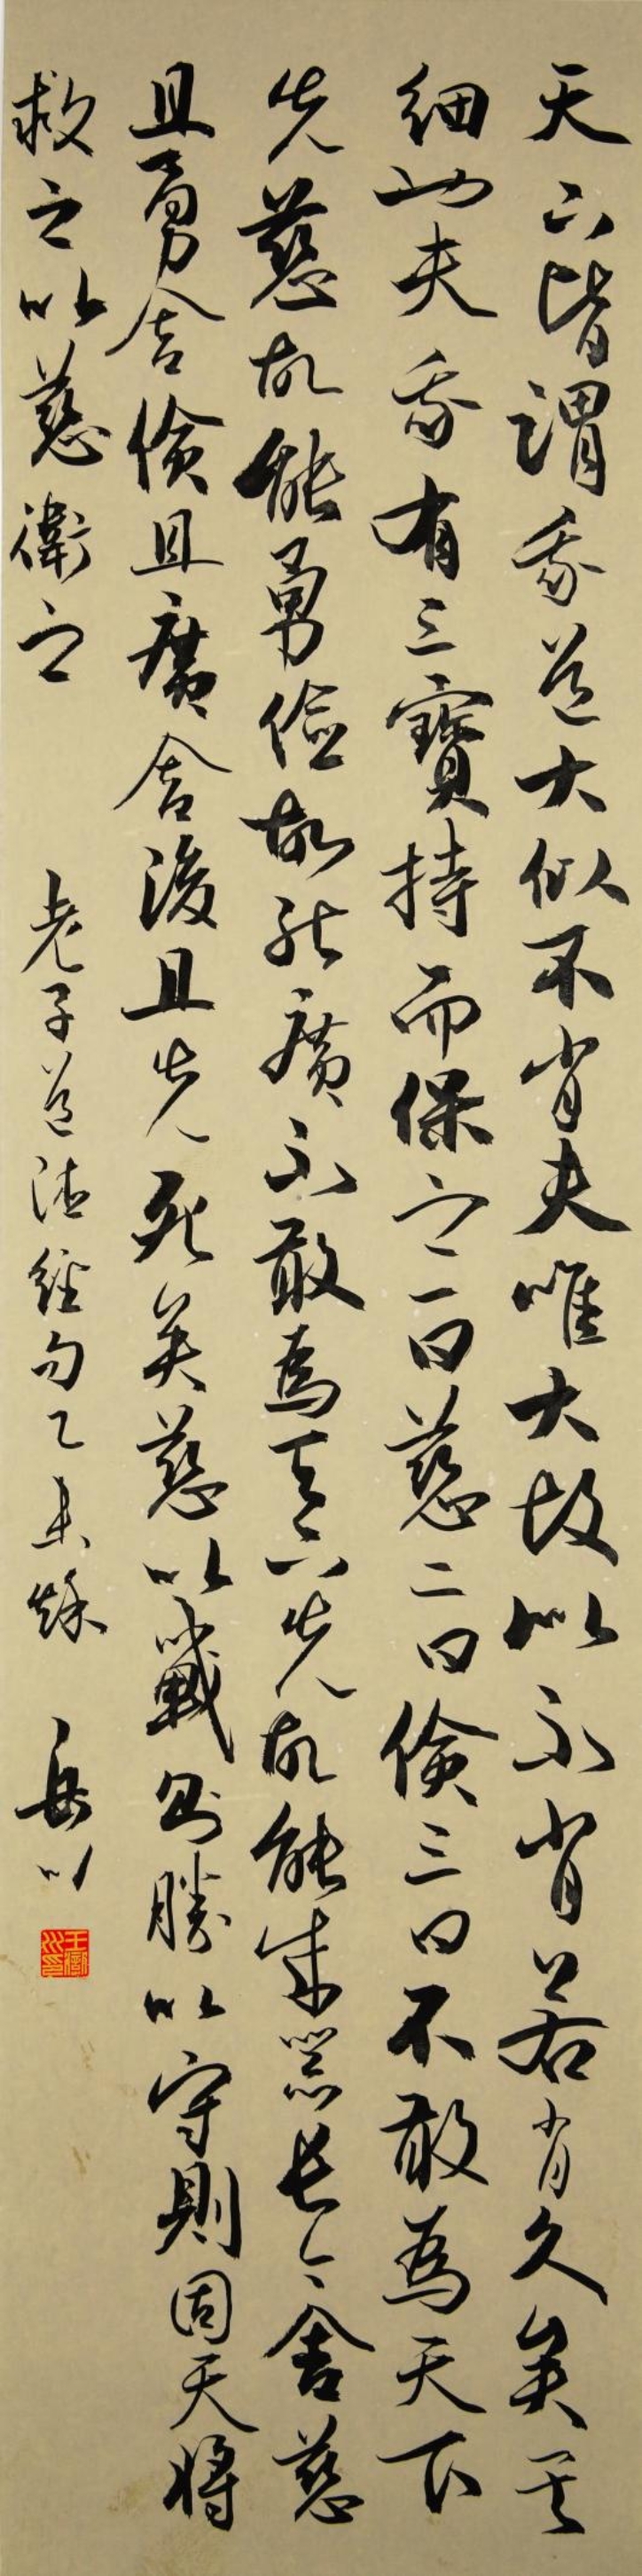 天下皆謂我道大似不肖夫唯大故似不肖若肖久矣其
細也夫我有三寶持而保之一曰慈二曰儉三曰不敢為天下
先慈故能勇儉故能廣不敢為天下先故能成器長今舍慈
且勇舍儉且廣舍後且先死矣慈以戰則勝以守則固天將
救之以慈衛之
老子道德經句乙未秌